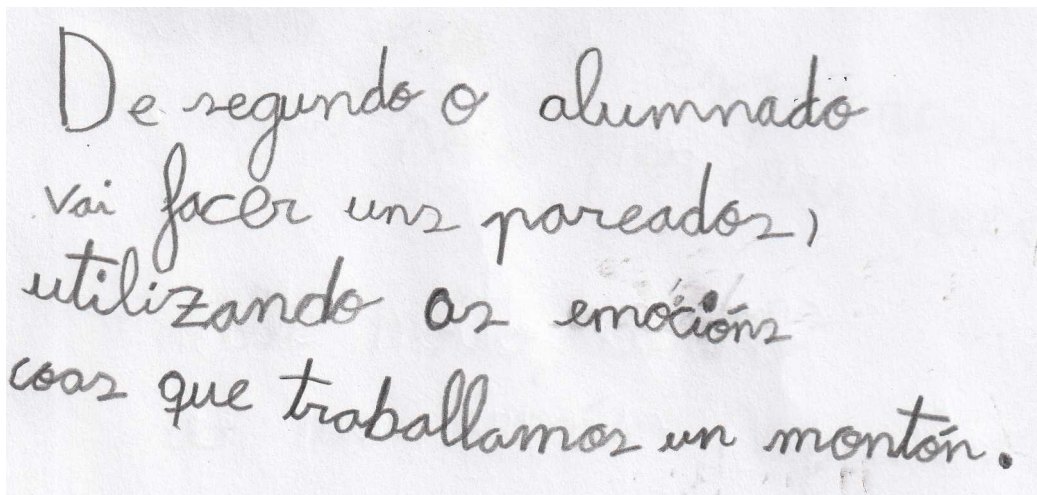 De segundo o alumnado
vai facer uns pareados,
utilizando as emocións
coas que traballamos un montón.